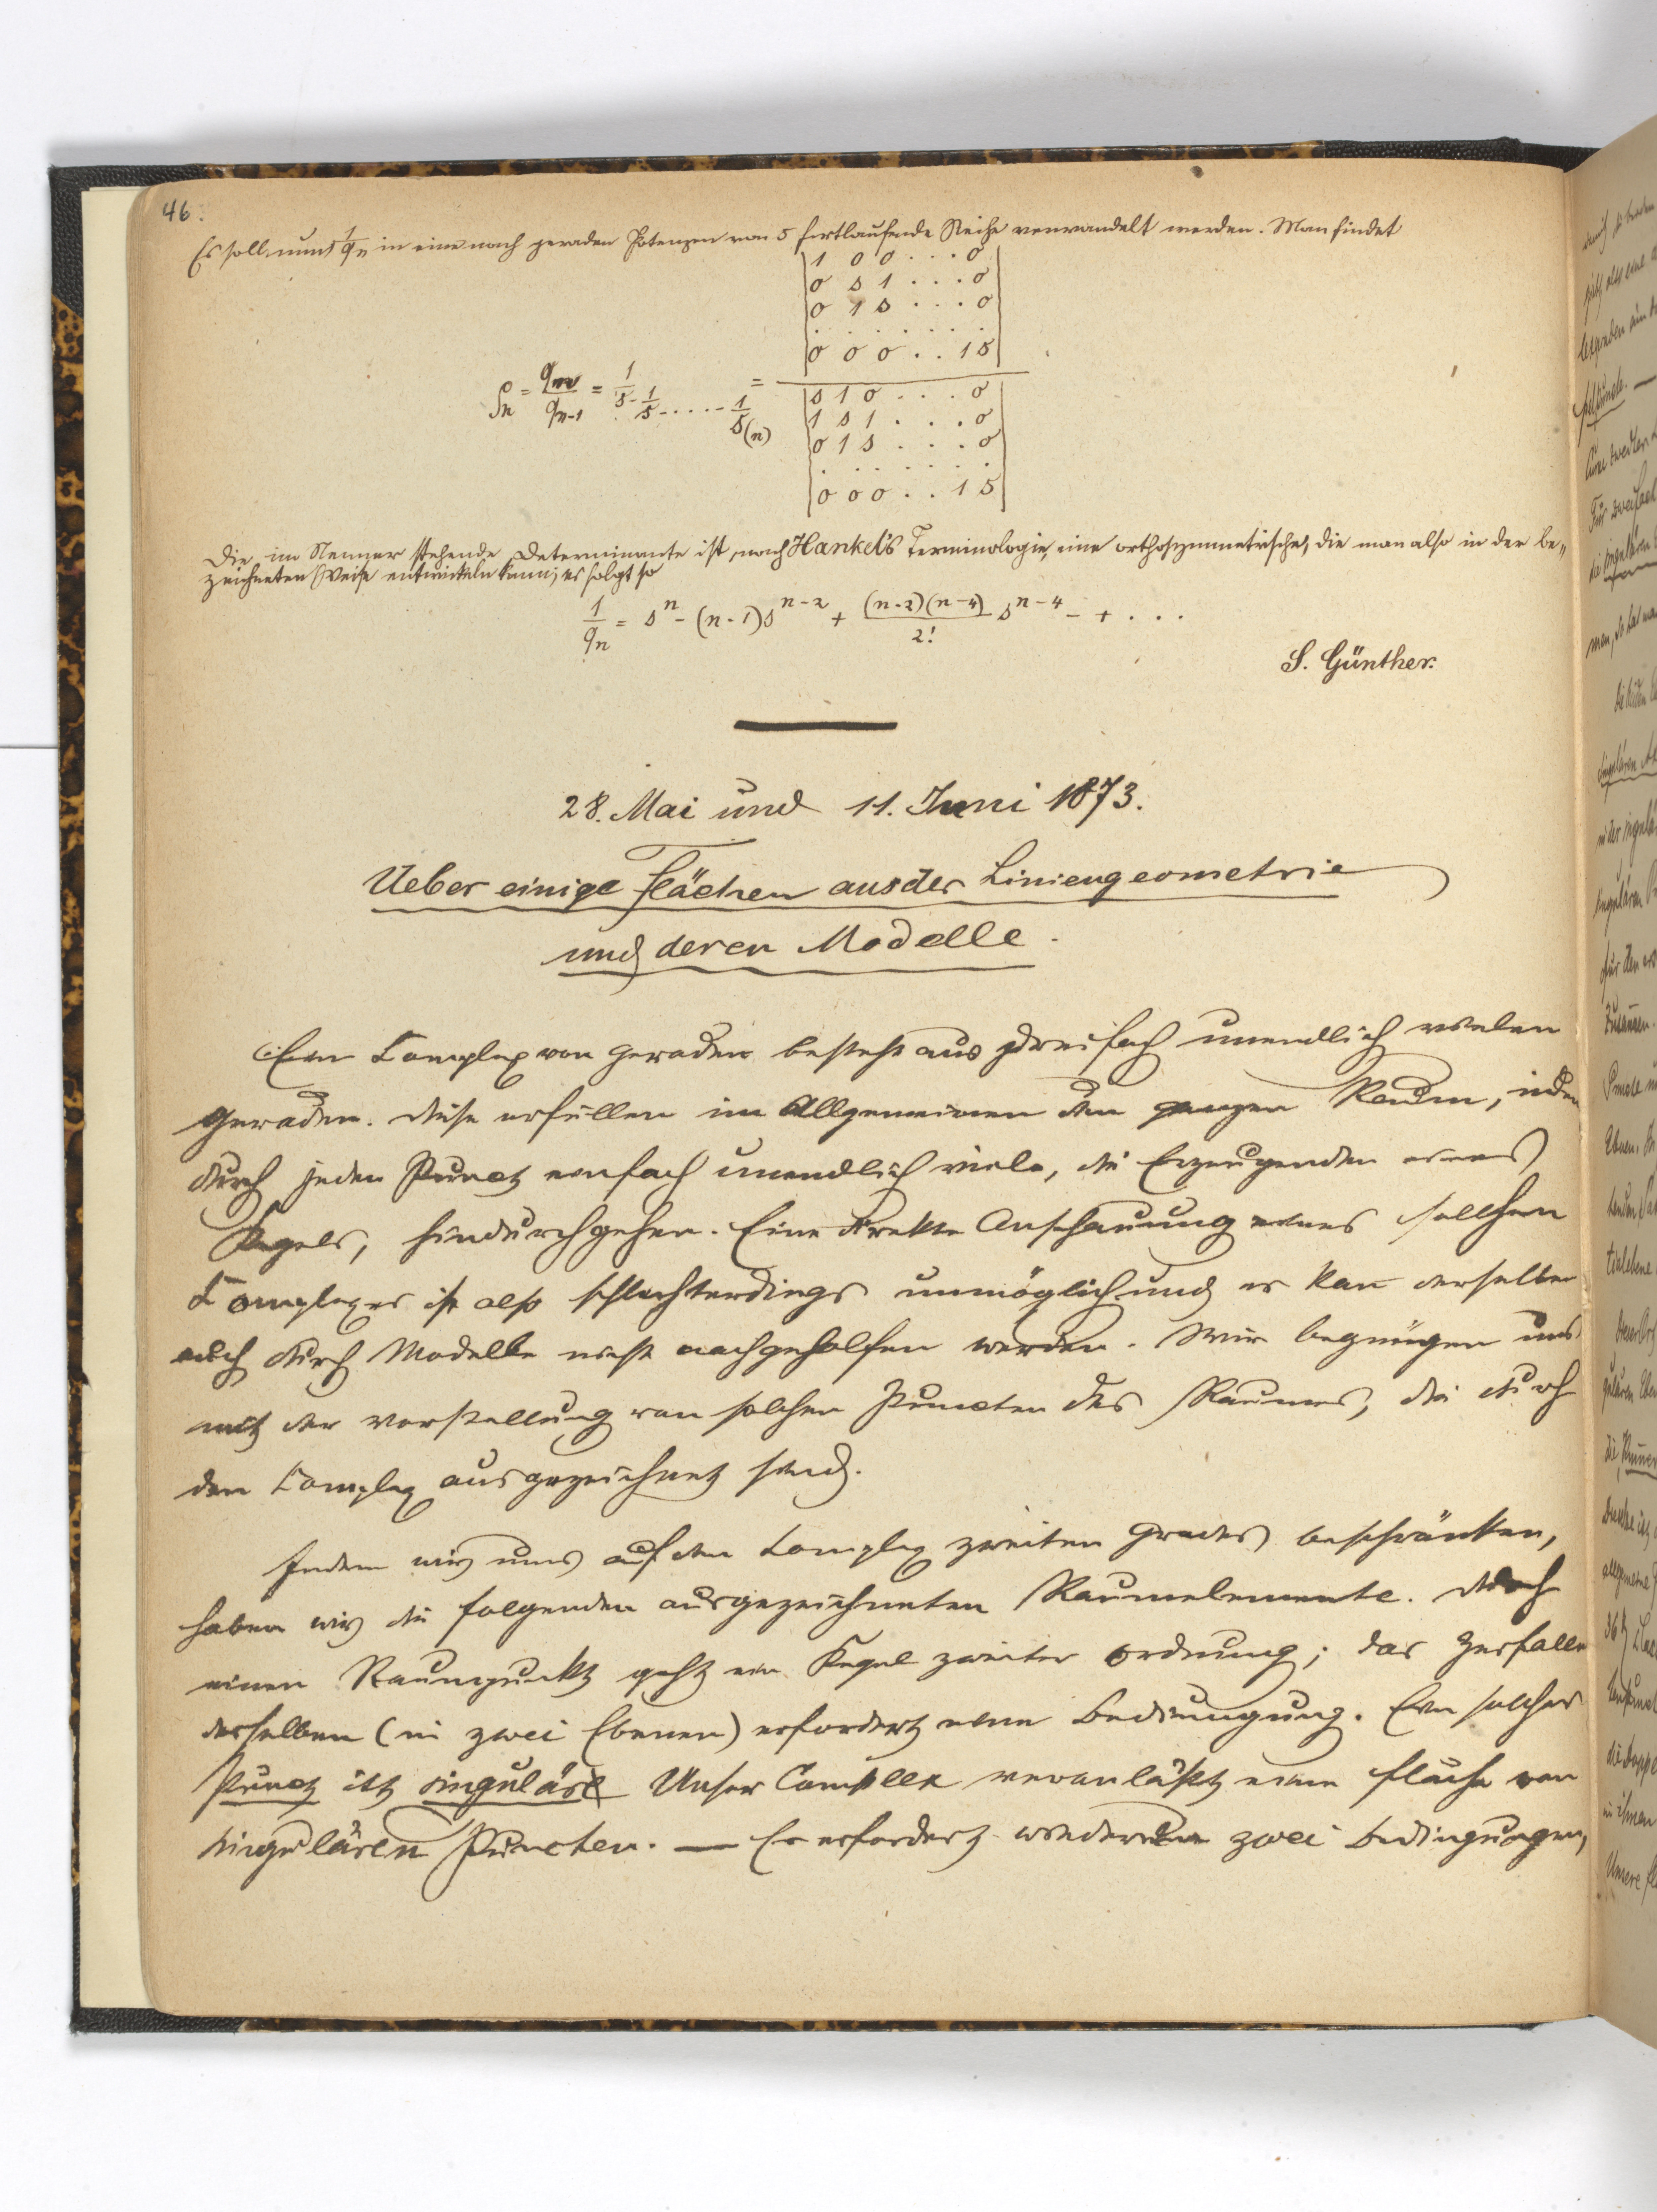 46.
Es soll nun 1/qn in eine nach geraden Potenzen von s fortlaufende Reihe verwandelt werden. Man findet
|1 0 0 . . . 0|
|0 s 1 . . . 0|
|0 1 s . . . 0|
. . . . . . .
|0 0 0 . . 1 s|
ρn = qn/qn-1 = 1/s - 1/s - . . . . - 1/s(n) =
|s 1 0 . . . 0|
|1 s 1 . . . 0|
|0 1 s . . . 0|
. . . . . . .
|0 0 0 . . 1 s|
Die im Nenner stehende Determinante ist, nach Hankel's Terminologie, eine orthosymmetrische, die man also in der be-
zeichneten Weise entwickeln kann; es folgt so
1/qn = s^n - (n-1)s^n-2 + (n-2)(n-4)/2! s^n-4 - + . . .
S. Günther.
28. Mai und 11. Juni 1873.
Ueber einige Flächen aus der Liniengeometrie
und deren Modelle.
Ein Complex von Geraden besteht aus dreifach unendlich vielen
Geraden. Diese erfüllen im Allgemeinen den ganzen Raum, indem
durch jeden Punct einfach unendlich viele, die Erzeugenden eines
Kegels, hindurchgehen. Eine direkte Anschauung eines sollchen
Complexes ist also schlechterdings unmöglich und es kan̄ derselben
auch durch Modelle nicht nachgeholfen werden. Wir begnügen uns
mit der Vorstellung von solchen Puncten des Raumes, die durch
den Complex ausgezeichnet sind.
Indem wir uns auf den Complex zweiten Grades beschränken,
haben wir die folgenden ausgezeichneten Raumelemente. Durch
einen Raumpunkt geht ein Kegel zweiter Ordnung; das Zerfallen
desselben (in zwei Ebenen) erfordert eine Bedingung. Ein solcher
Punct ist singulär. Unser Complex veranläßt eine Fläche von
singulären Puncten. — Es erfordert wiederum zwei Bedingungen,